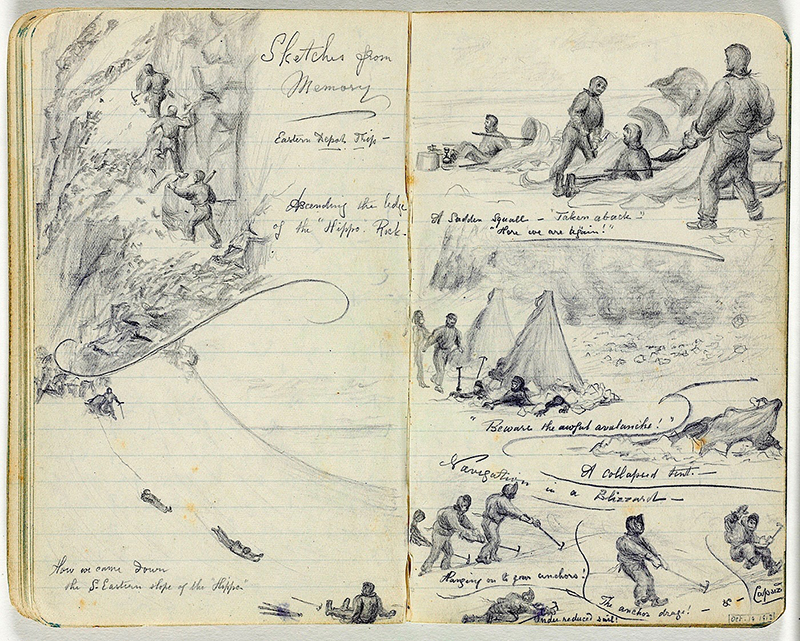 Sketches from
Memory
Eastern Depot Trip —
Ascending the ledge
of the "Hippo. Rock.
How we came down
the S. Eastern slope of the "Hippo"
A Sudden Squall — "Taken aback"
"Here we are again!"
"Beware the awful avalanche!"
A collapsed tent. —
Navigation in a Blizzard —
Hanging on to your anchors!
The anchor drags! — & —
Under reduced sail!